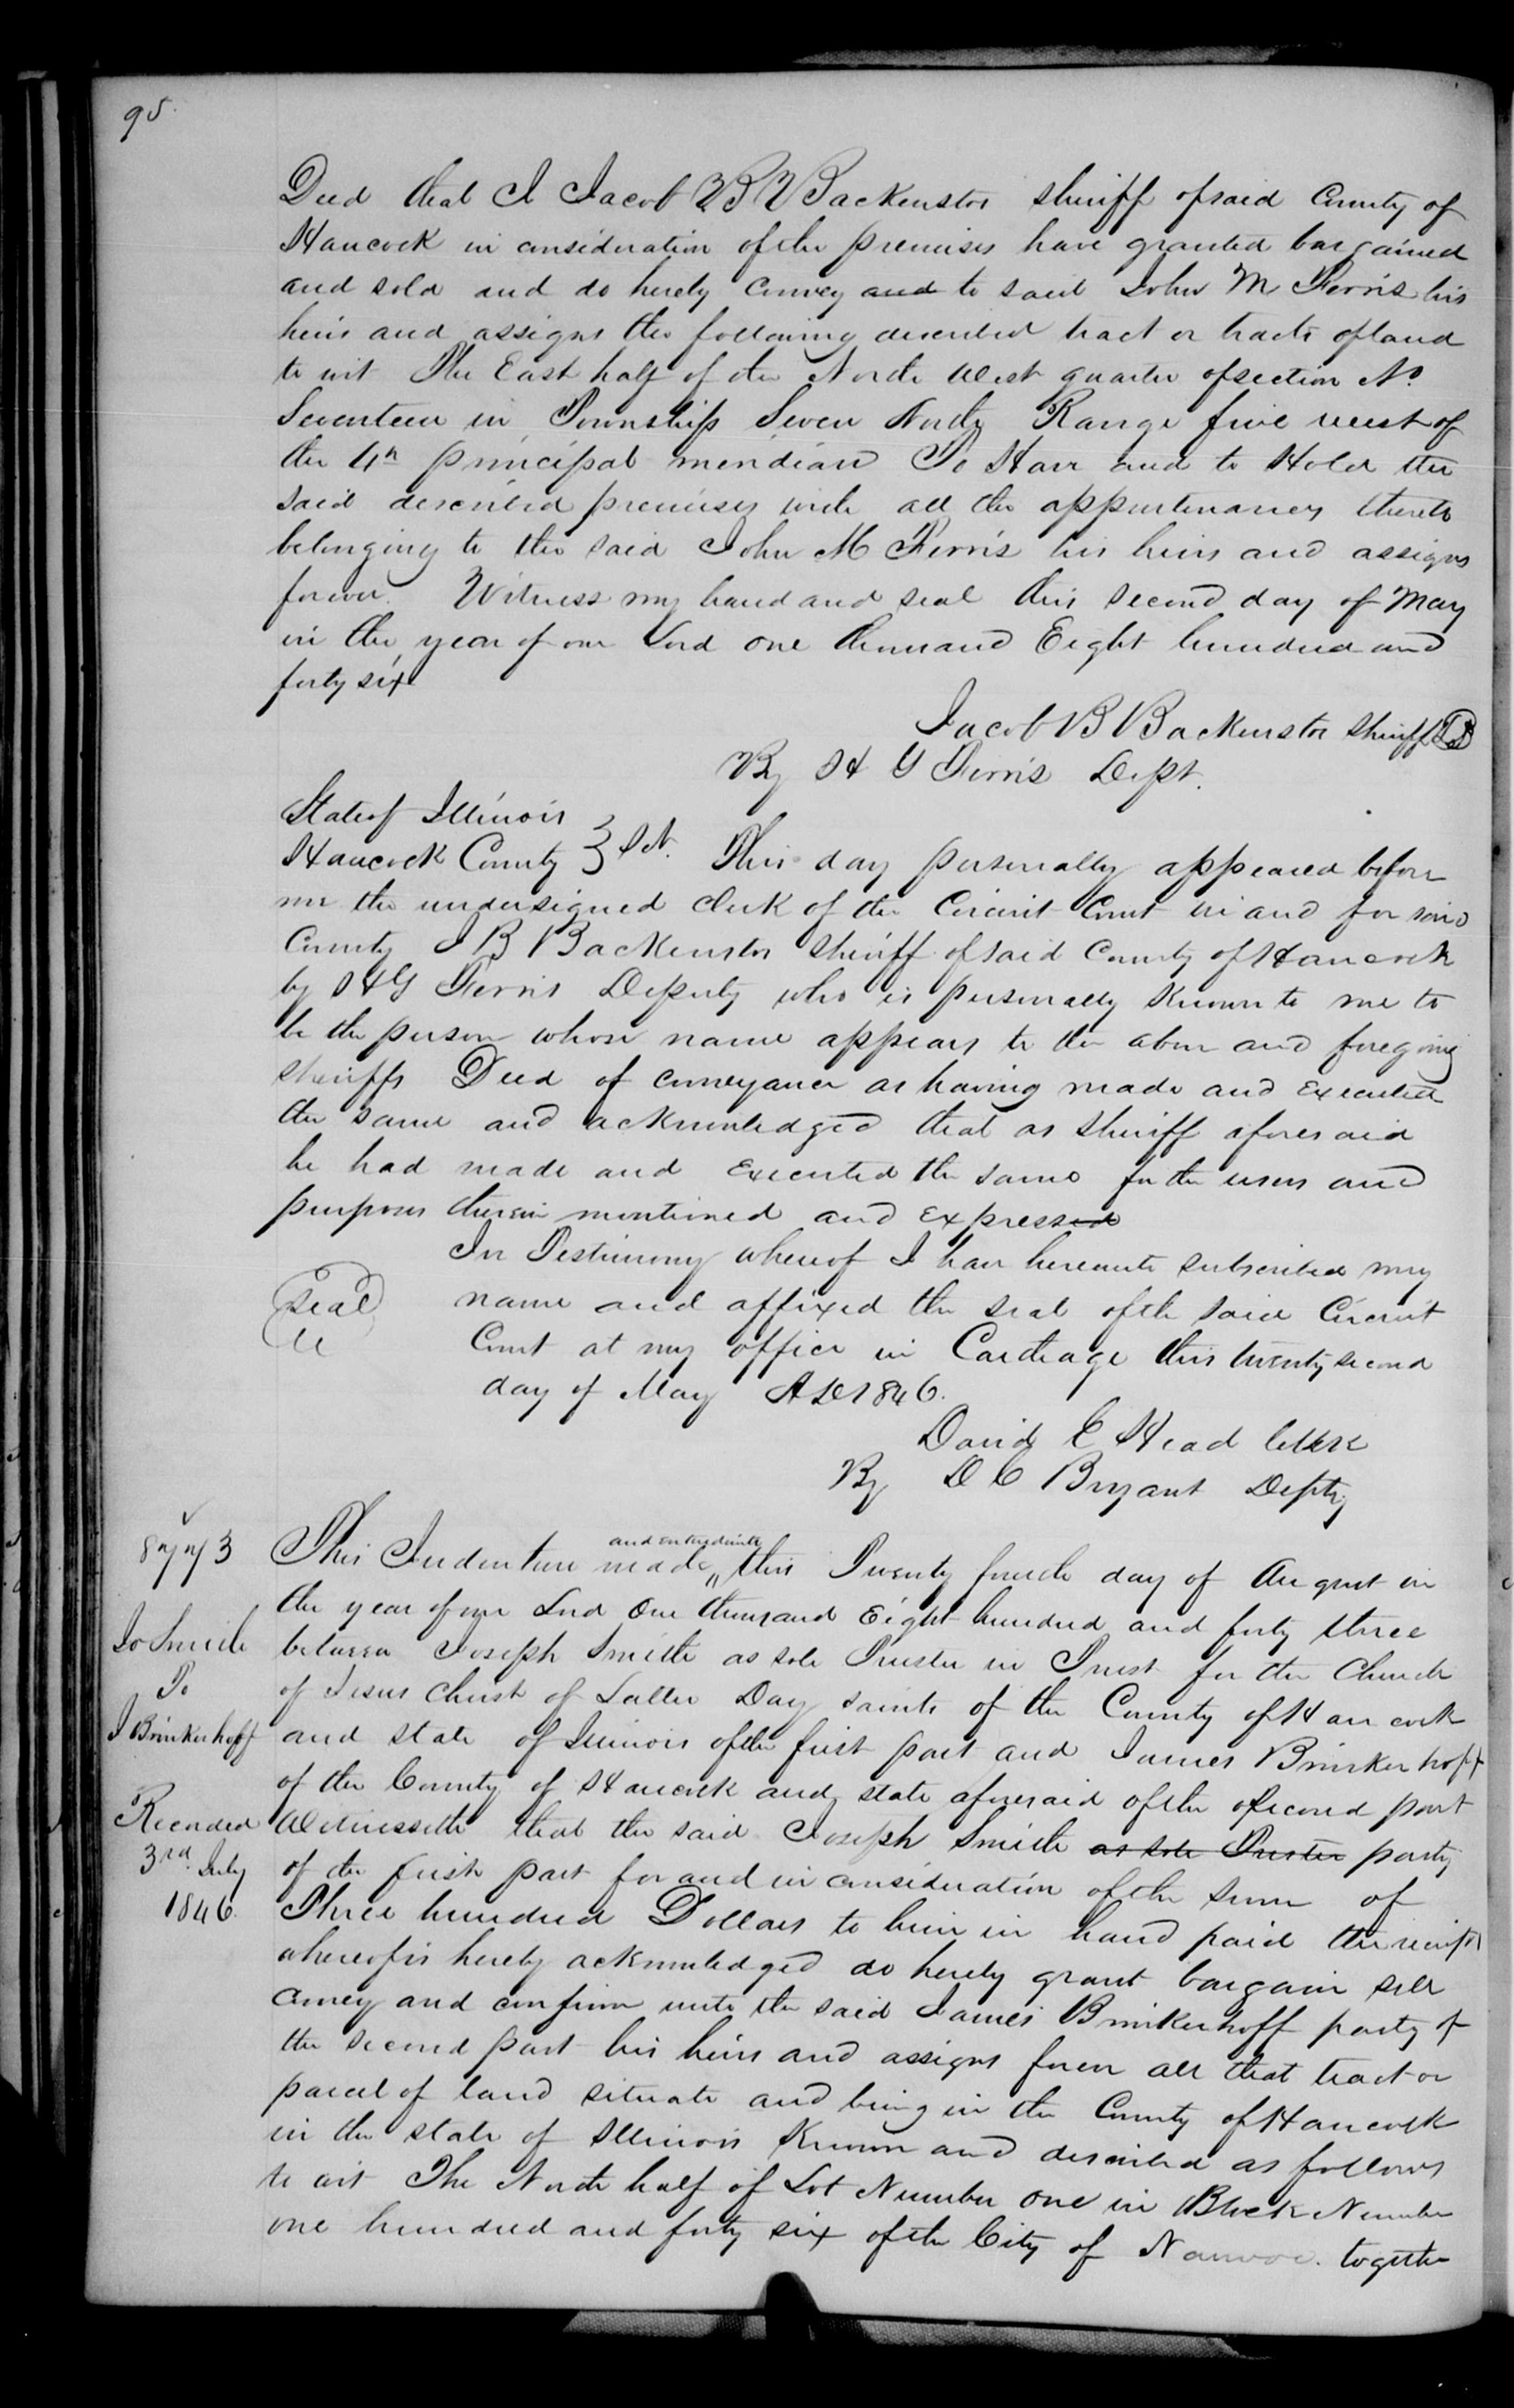 95
Deed that I Jacob B Backenstos sheriff of said County of
Hancock in consideration of the premises have granted bargained
and sold and do hereby convey and to said John M Ferris his
heirs and assigns the following described tract or tracts of land
to wit The East half of the North West quarter of section No
Seventeen in Township Seven North Range five west of
the 4th principal meridian To Have and to Hold the
said described premises with all the appurtenances thereto
belonging to the said John M Ferris his heirs and assigns
forever. Witness my hand and seal this second day of May
in the year of our Lord one thousand Eight hundred and
forty six
Jacob B Backenstos Sheriff LS
By H G Ferris Dept.
State of Illinois
Hancock County } Sct. This day personally appeared before
me the undersigned Clerk of the Circuit Court in and for said
County J B Backenstos Sheriff of said County of Hancock
by H G Ferris Deputy who is personally Known to me to
be the person whose name appears to the above and foregoing
Sheriffs Deed of conveyance as having made and executed
the same and acknowledged that as Sheriff aforesaid
he had made and executed the same for the uses and
purposes therein mentioned and expressed
In Testimony whereof I have hereunto subscribed my
Seal name and affixed the seal of the said Circuit
Court at my office in Carthage this twenty second
day of May AD 1846.
David E Head Clerk
By D C Bryant Depty
8773 This Indenture made and entered into this Twenty fourth day of August in
the year of our Lord One thousand Eight hundred and forty three
Jo Smith between Joseph Smith as sole Trustee in Trust for the Church
To of Jesus Christ of Latter Day saints of the County of Hancock
J Brinkerhoff and state of Illinois of the first part and James Brinkerhoff
of the County of Hancock and state aforesaid of the second part
Recorded Witnesseth that the said Joseph Smith as sole Trustee party
3rd July of the first part for and in consideration of the sum of
1846. Three hundred Dollars to him in hand paid the receipt
whereof is hereby acknowledged do hereby grant bargain sell
convey and confirm unto the said James Brinkerhoff party of
the second part his heirs and assigns forever all that tract or
parcel of land situate and being in the County of Hancock
in the state of Illinois Known and described as follows
to wit The North half of Lot Number one in Block Number
one hundred and forty six of the City of Nauvoo. together